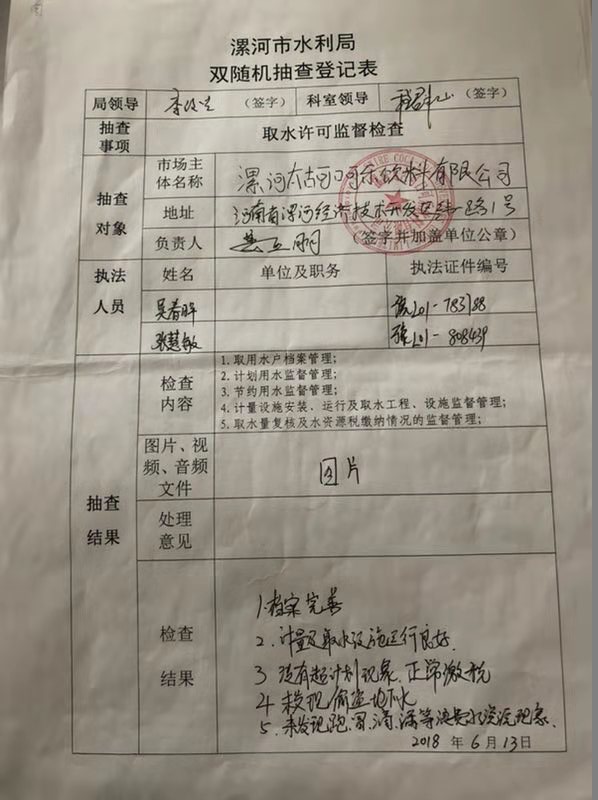 漯河市水利局
双随机抽查登记表
局领导 （签字） 科室领导 （签字）
抽查事项 取水许可监督检查
抽查对象
市场主体名称 漯河太古可口可乐饮料有限公司
地址 河南省漯河经济技术开发区燕山路1号
负责人 （签字并加盖单位公章）
执法人员
姓名 单位及职务 执法证件编号
吴春晖 豫L01-783188
张慧敏 豫L01-808439
抽查结果
检查内容
1. 取用水户档案管理；
2. 计划用水监督管理；
3. 节约用水监督管理；
4. 计量设施安装、运行及取水工程、设施监督管理；
5. 取水量复核及水资源税缴纳情况的监督管理；
图片、视频、音频文件 图片
处理意见
检查结果
1.档案完善
2.计量及取水设施运行良好.
3 没有超计划现象.正常缴税
4 未发现偷盗地下水
5.未发现跑.冒.滴.漏等浪费水资源现象.
2018 年 6 月 13 日